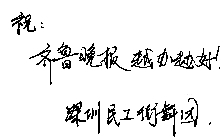 祝：
齐鲁晚报越办越好！
深圳民工街舞团